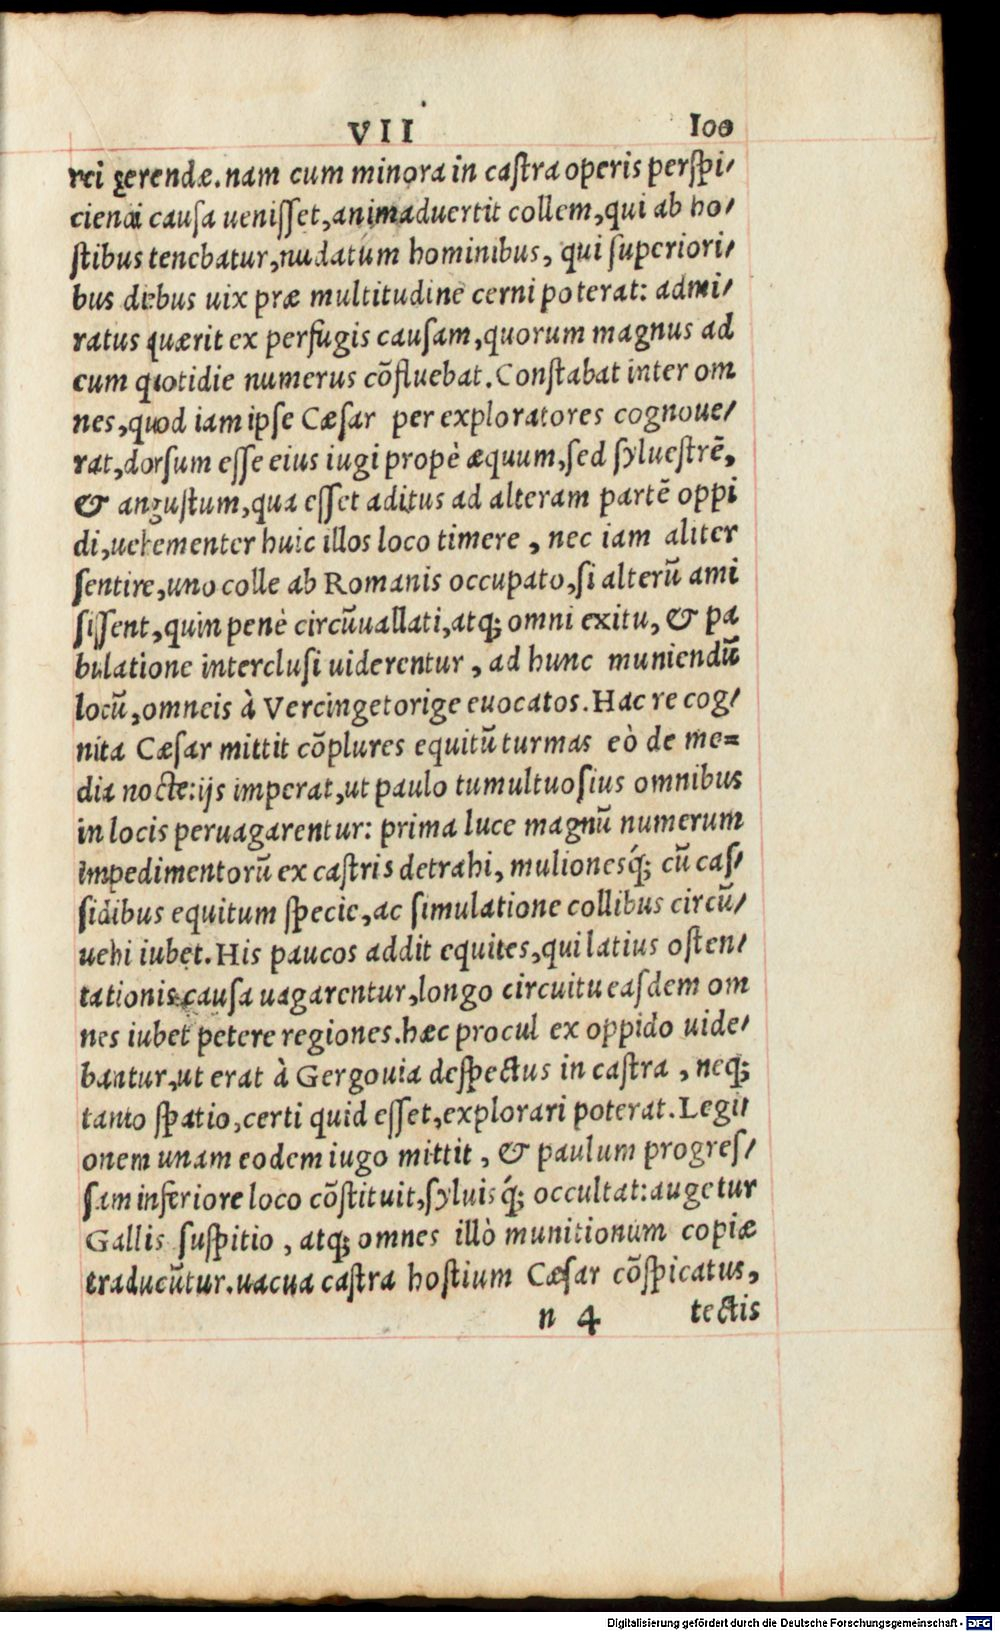 VII 100
rei gerendæ. nam cum minora in castra operis perspi/
ciendi causa uenisset, animaduertit collem, qui ab ho/
stibus tenebatur, nudatum hominibus, qui superiori/
bus diebus uix præ multitudine cerni poterat: admi/
ratus quærit ex perfugis causam, quorum magnus ad
eum quotidie numerus cõfluebat. Constabat inter om
nes, quod iam ipse Cæsar per exploratores cognoue/
rat, dorsum esse eius iugi propè æquum, sed syluestrẽ,
& angustum, qua esset aditus ad alteram partẽ oppi
di, uehementer huic illos loco timere, nec iam aliter
sentire, uno colle ab Romanis occupato, si alterũ ami
sissent, quin penè circũuallati, atq; omni exitu, & pa
bulatione interclusi uiderentur, ad hunc muniendũ
locũ, omneis à Vercingetorige euocatos. Hac re cog/
nita Cæsar mittit cõplures equitũ turmas eò de me=
dia nocte: ijs imperat, ut paulo tumultuosius omnibus
in locis peruagarentur: prima luce magnũ numerum
impedimentorũ ex castris detrahi, mulionesq́; cũ cas/
sidibus equitum specie, ac simulatione collibus circũ/
uehi iubet. His paucos addit equites, qui latius osten/
tationis causa uagarentur, longo circuitu easdem om
nes iubet petere regiones. hæc procul ex oppido uide/
bantur, ut erat à Gergouia despectus in castra, neq;
tanto spatio, certi quid esset, explorari poterat. Legi/
onem unam eodem iugo mittit, & paulum progres/
sam inferiore loco cõstituit, syluis q́; occultat: augetur
Gallis suspitio, atq; omnes illò munitionum copiæ
traducũtur. uacua castra hostium Cæsar cõspicatus,
n 4 tectis
Digitalisierung gefördert durch die Deutsche Forschungsgemeinschaft - DFG